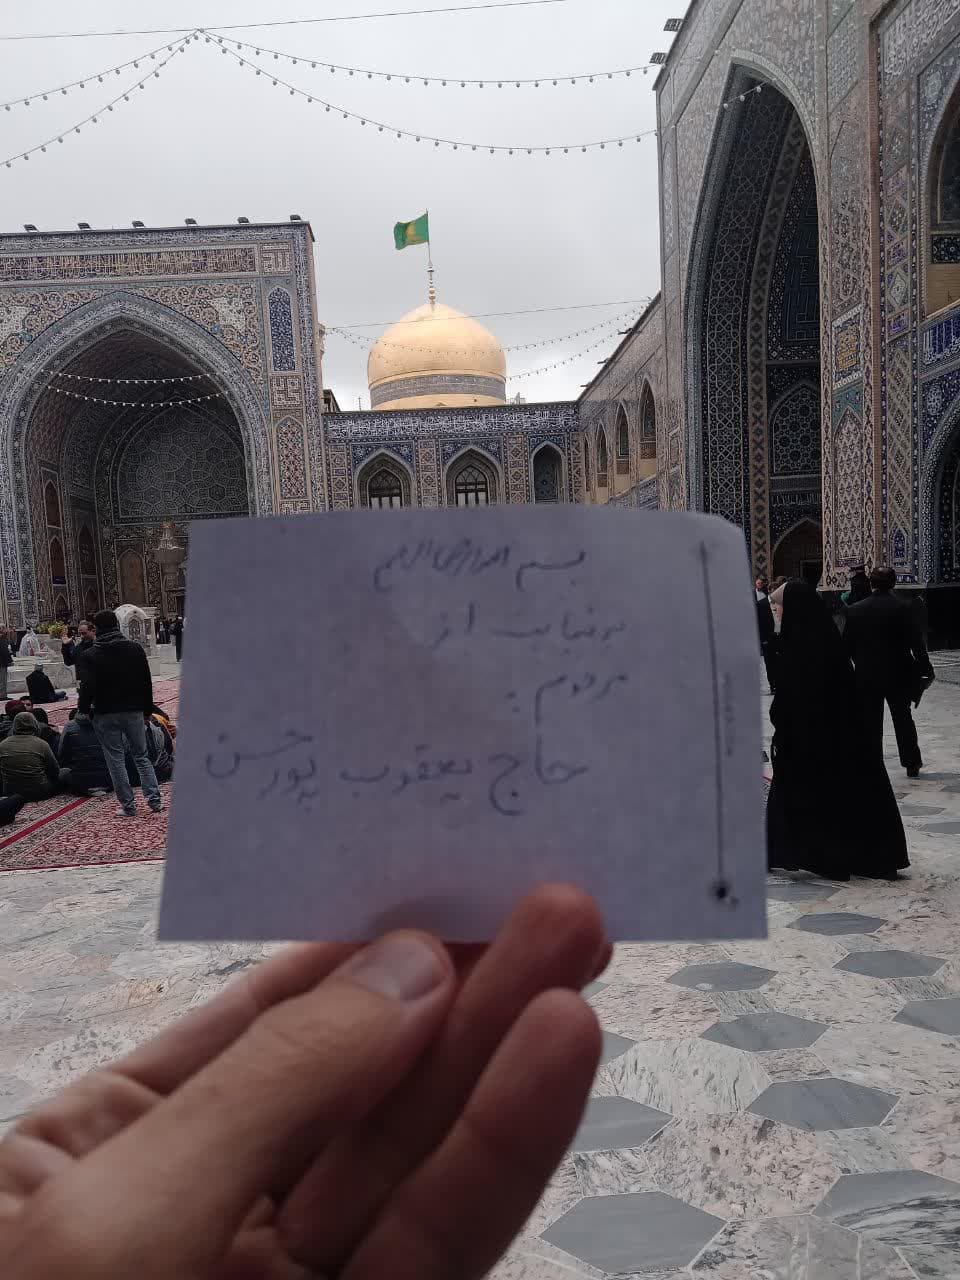 بسم الله الرحمن الرحیم
به نیابت از
مرحوم:
حاج یعقوب پورحسن